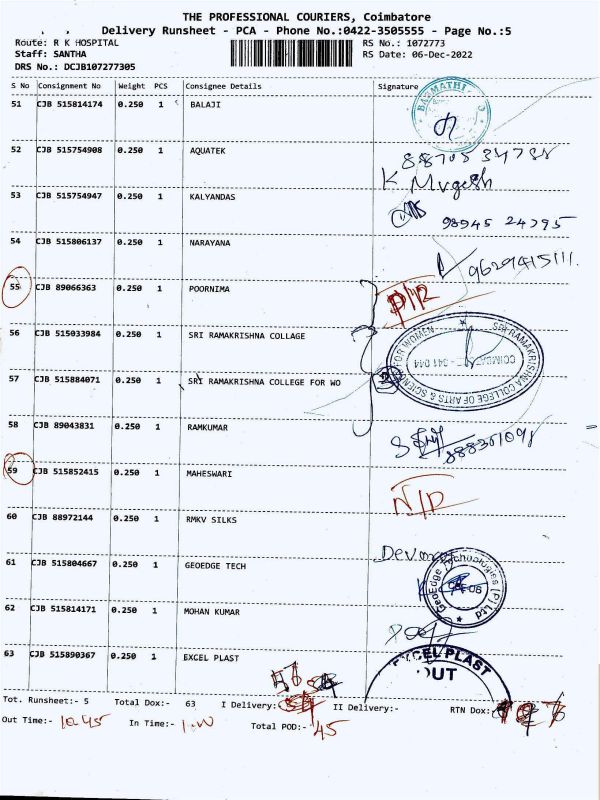 THE PROFESSIONAL COURIERS, Coimbatore
Delivery Runsheet - PCA - Phone No.:0422-3505555 - Page No.:5
Route: R K HOSPITAL RS No.: 1072773
Staff: SANTHA RS Date: 06-Dec-2022
DRS No.: DCJB107277305
S No Consignment No Weight PCS Consignee Details Signature
51 CJB 515814174 0.250 1 BALAJI
52 CJB 515754908 0.250 1 AQUATEK
K Mugesh
53 CJB 515754947 0.250 1 KALYANDAS
98945 24795
54 CJB 515806137 0.250 1 NARAYANA
9629415111.
55 CJB 89066363 0.250 1 POORNIMA
56 CJB 515033984 0.250 1 SRI RAMAKRISHNA COLLAGE
SRI RAMAKRISHNA COLLEGE OF ARTS & SCIENCE FOR WOMEN
COIMBATORE - 641 044
57 CJB 515884071 0.250 1 SRI RAMAKRISHNA COLLEGE FOR WO
58 CJB 89043831 0.250 1 RAMKUMAR
59 CJB 515852415 0.250 1 MAHESWARI
N/R
60 CJB 88972144 0.250 1 RMKV SILKS
61 CJB 515804667 0.250 1 GEOEDGE TECH
GeoEdge Technologies (P) Ltd
62 CJB 515814171 0.250 1 MOHAN KUMAR
63 CJB 515890367 0.250 1 EXCEL PLAST
EXCEL PLAST
OUT
Tot. Runsheet:- 5 Total Dox:- 63 I Delivery:- II Delivery:- RTN Dox:
Out Time:- 10.45 In Time:- 1.00 Total POD:- 45